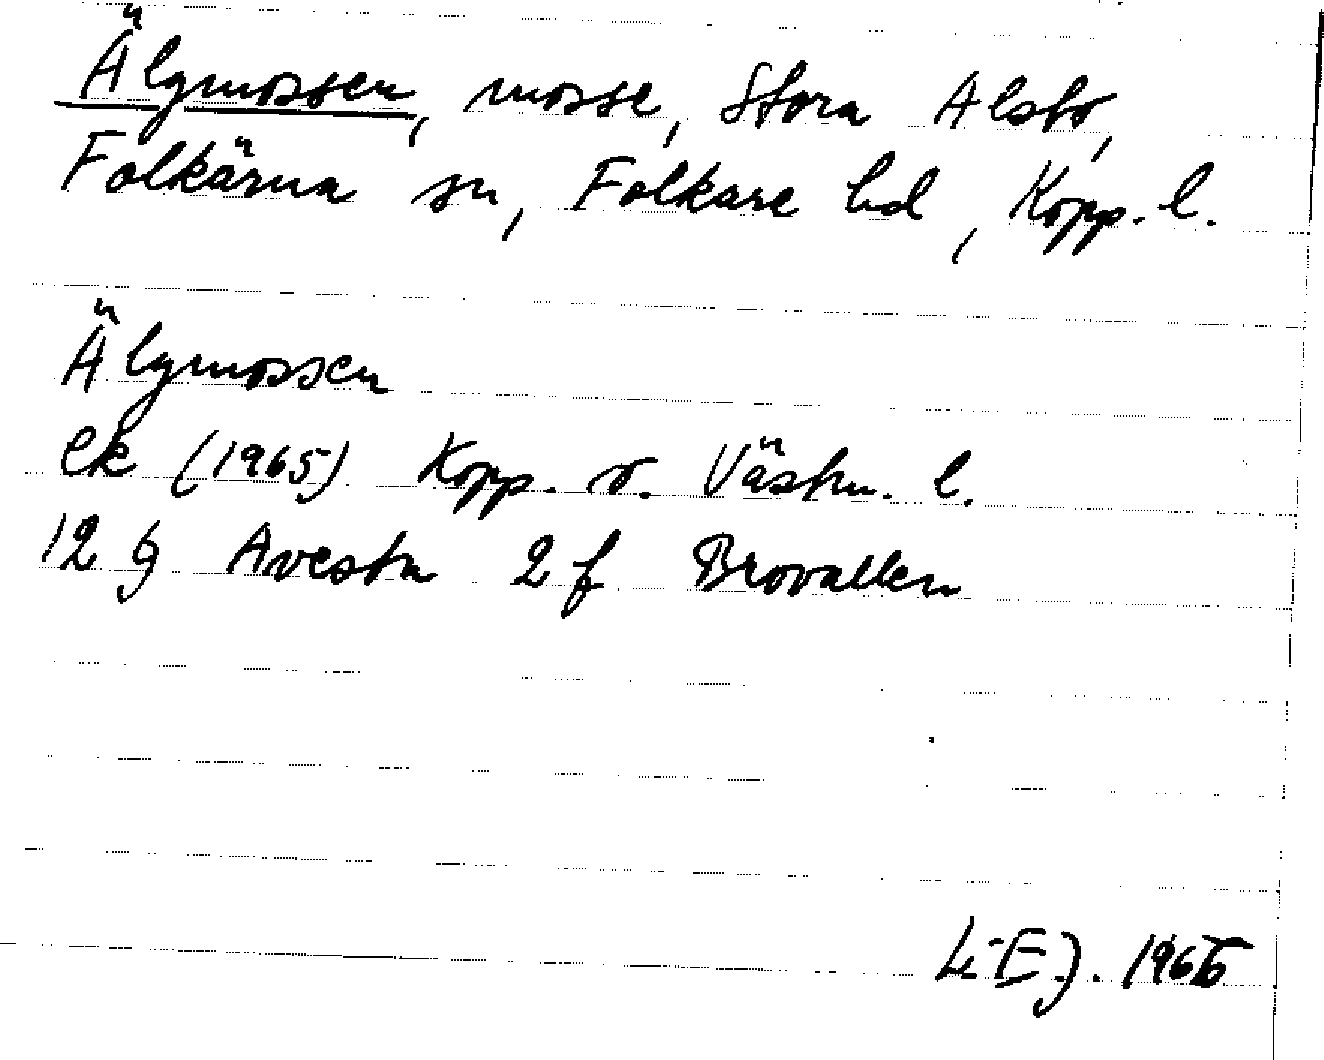 Älgmossen, mosse, Stora Alsbo,
Folkärna sn, Folkare hd, Kopp. l.
Älgmossen
Ek (1965) Kopp. o. Västm. l.
12 G Avesta 2 f Brovallen
L-EJ. 1966